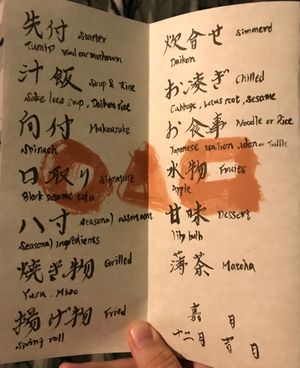 先付 Starter
Turnip, Wood ear mushroom
汁 飯 Soup & Rice
Sake lees soup, Daikon rice
向付 Mukouzuke
Spinach
口取り Signature
Black sesame tofu
八寸 Seasonal assortment
Seasonal ingredients
焼き物 Grilled
Yuzu, Miso
揚げ物 Fried
Spring roll
炊合せ Simmered
Daikon
お凌ぎ Chilled
Cabbage, Lotus root, Sesame
お食事 Noodle or Rice
Japanese scallion, Udon or Truffle
水物 Fruits
Apple
甘味 Dessert
lily bulb
薄茶 Matcha
月
十二月